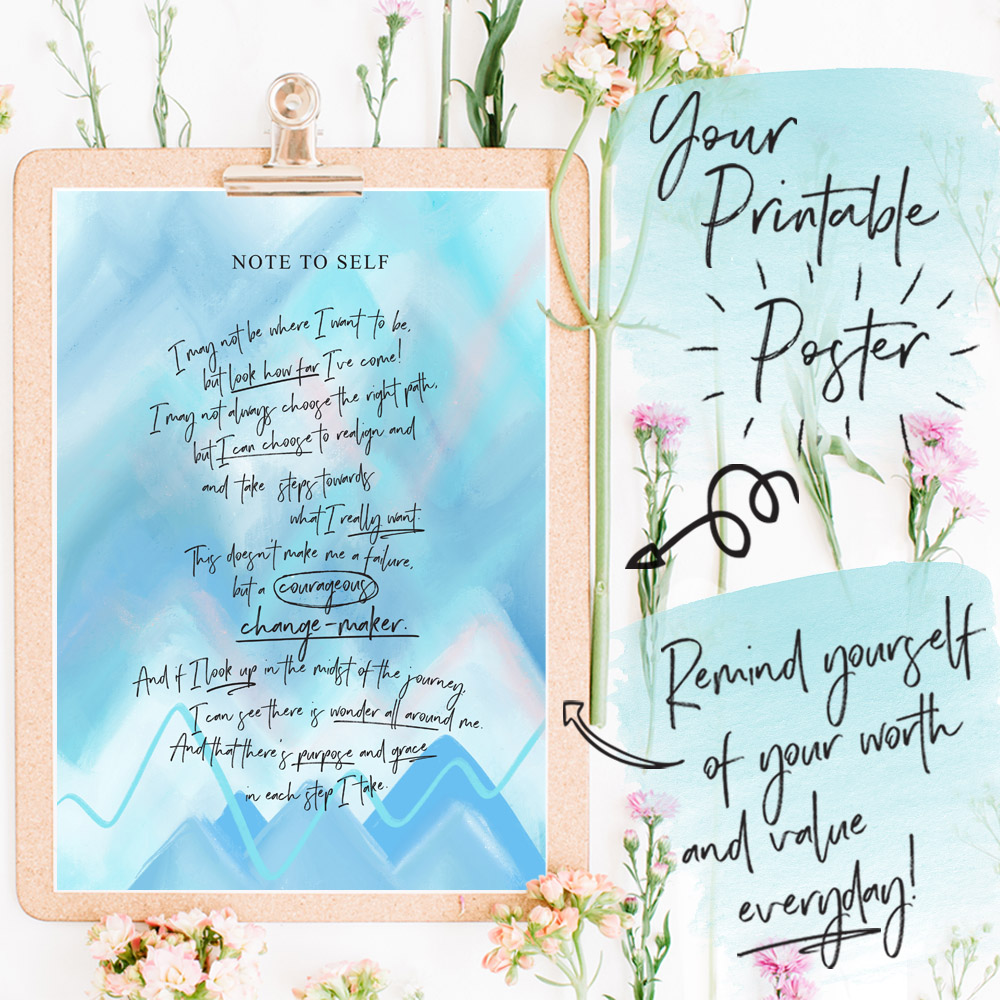 NOTE TO SELF
I may not be where I want to be,
but look how far I've come!
I may not always choose the right path,
but I can choose to realign and
and take steps towards
what I really want.
This doesn't make me a failure,
but a courageous
change-maker.
And if I look up in the midst of the journey,
I can see there is wonder all around me.
And that there's purpose and grace
in each step I take.
Your
Printable
Poster
Remind yourself
of your worth
and value
everyday!